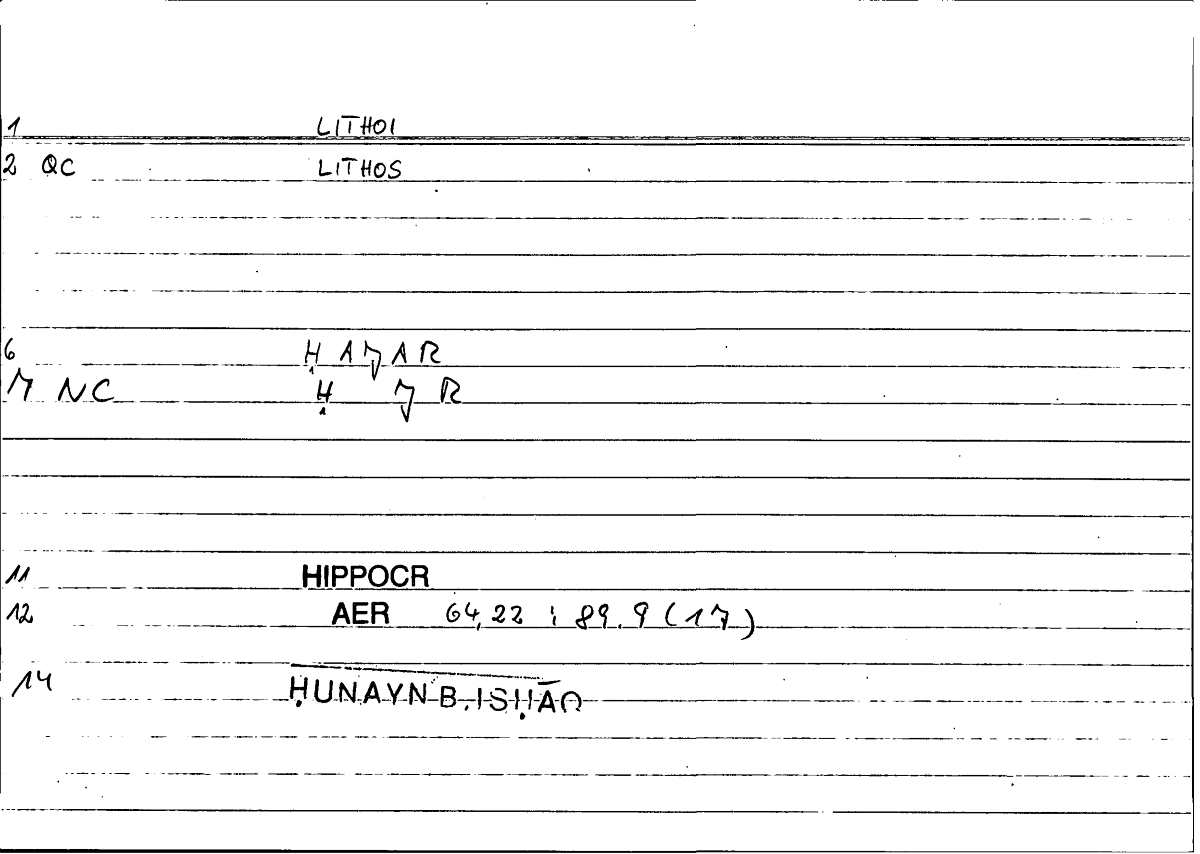 1 LITHOI
2 QC LITHOS
6 ḤAJAR
7 NC Ḥ J R
11 HIPPOCR
12 AER 64,22 ; 89.9 (17)
14 ḤUNAYN B. ISḤĀQ